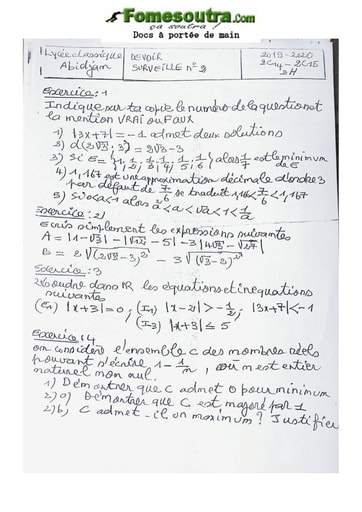 Fomesoutra.com
ça soutra !
Docs à portée de main
Lycée classique Abidjan
DEVOIR SURVEILLE n° 2
2019-2020
2C14 - 2C15
2H
Exercice : 1
Indique sur ta copie le numero de la question et
la mention VRAI ou FAUX
1) |3x+7| = -1 admet deux solutions
2) d(2√3 ; 3) = 2√3-3
3) Si E = {1; 1/2; 1/3; 1/4; 1/5; 1/6} alors 1/7 est le minimum
de E
4) 1,167 est une approximation décimale d'ordre 3
par défaut de 7/6 se traduit 1,166 < 7/6 < 1,167
5) Si 0<a<1 alors a² < a < √a < 1 < 1/a
Exercice : 2
Ecris simplement les expressions suivantes
A = |1-√3| - |√12 - 5| - 3|4√3 - √27|
B = 2√(2√3-3)² - 3√(√3-2)²
Exercice : 3
Résoudre dans IR les équations et inequations
suivantes
(E1) |x+3| = 0 ; (I1) |x-2| > -1/2 ; |3x+7| < -1
(I3) |x+3| ≤ 5
Exercice : 4
on considère l'ensemble C des nombres réels
pouvant s'écrire 1 - 1/n , où n est entier
naturel non nul.
1) Démontrer que C admet 0 pour minimum
2) a) Démontrer que C est majoré par 1
2) b) C admet-il un maximum ? Justifier